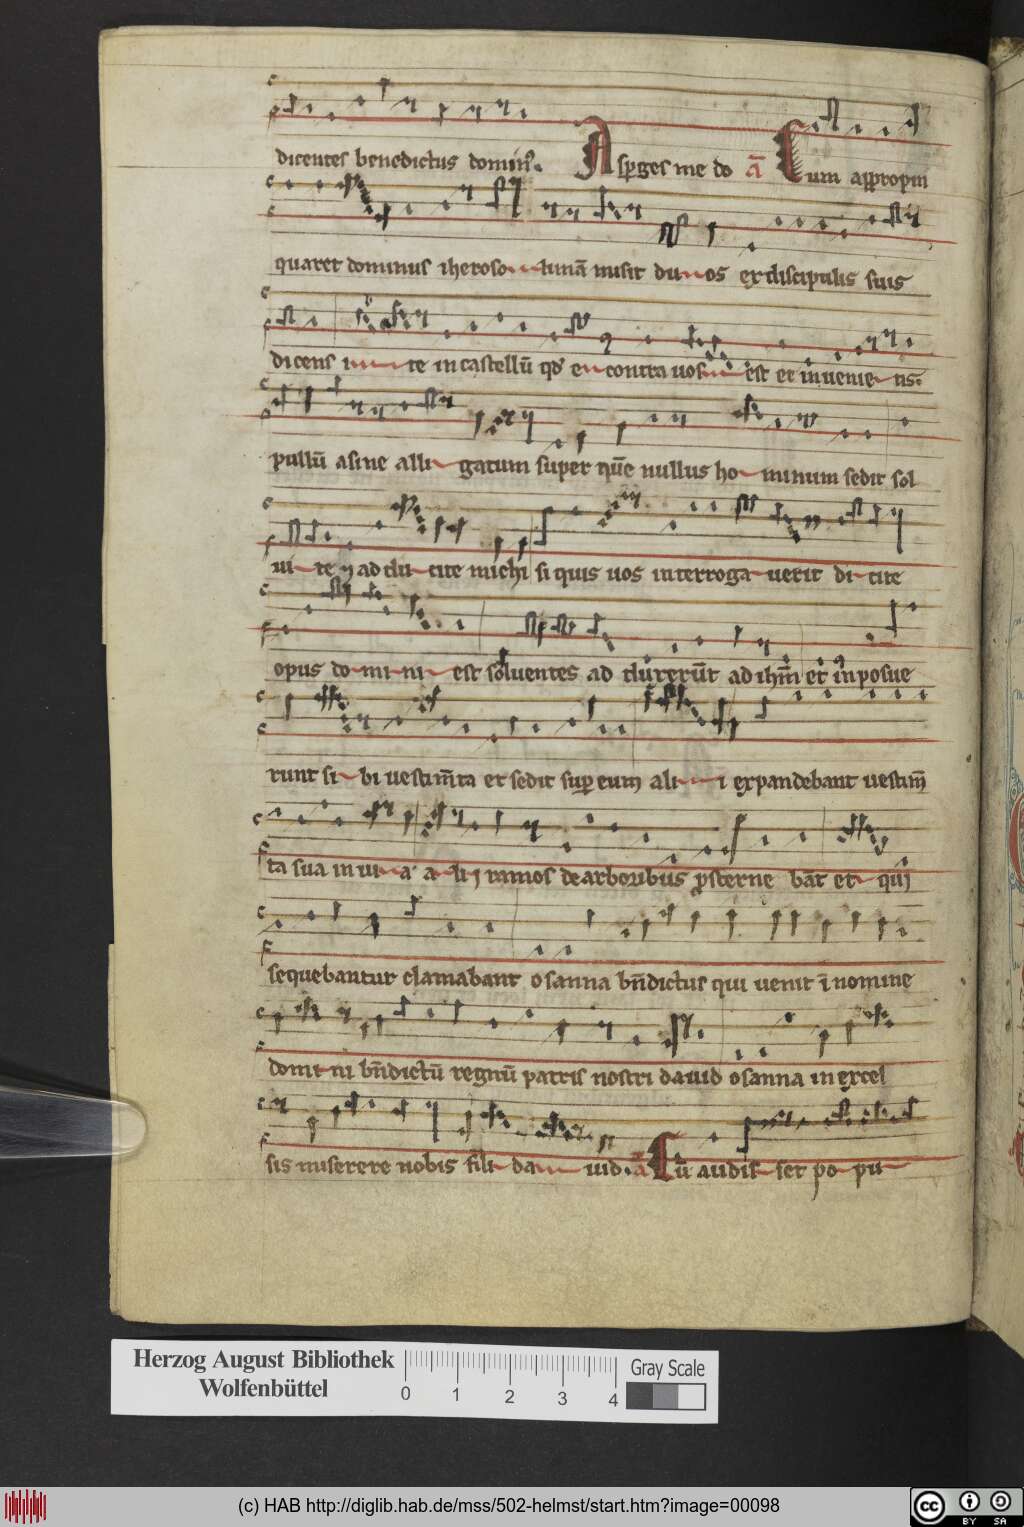 dicentes benedictus domin9. Asp̱ges me do a̅ Cum appropin
quaret dominus iheroso limā misit duos ex discipulis suis
dicens i te in castellū qd' e contra uos est et inuenie tis.
pullū asine alli gatum super quē nullus ho minum sedit sol
ui te ⁊ ad du cite michi si quis uos interroga uerit di cite
opus do mi ni est soluentes ad duxerūt ad ihm̄ et inposue
runt si bi uestim̄ta et sedit sup eum ali i expandebant uestim̄
ta sua in ui a a lij ramos de arboribus p̱sterne bāt et quj
sequebantur clamabant osanna bn̄dictus qui uenit ī nomine
domi ni bn̄dictū regnū patris nostri dauid osanna in excel
sis miserere nobis fili da uid. a̅ Cū audis set po pu
Herzog August Bibliothek
Wolfenbüttel
0 1 2 3 4
Gray Scale
(c) HAB http://diglib.hab.de/mss/502-helmst/start.htm?image=00098
cc BY SA